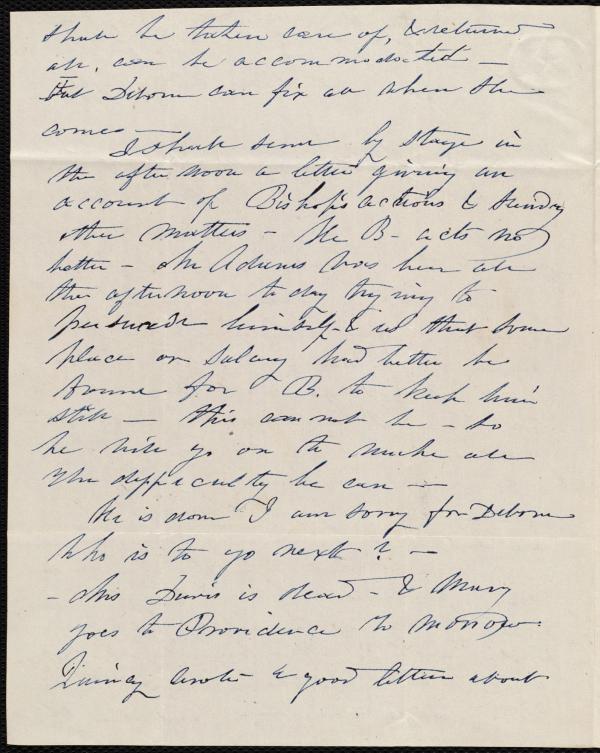 shall be taken care of, & returned
all, can be accommodated —
But Debora can fix all when she
comes —
I shall send by stage in
the afternoon a letter giving an
account of Bishop's actions & sundry
other matters — Mr B— acts no
better — Mr Adams has been all
the afternoon to day trying to
persuade himself & us that some
place or salary had better be
found for B. to keep him
still — this can not be — so
he will go on to make all
the difficulty he can —
He is down I am sorry for Debora
who is to go next? —
— Mrs Davis is dead — & Mary
goes to Providence to morrow
Quincy wrote a good letter about